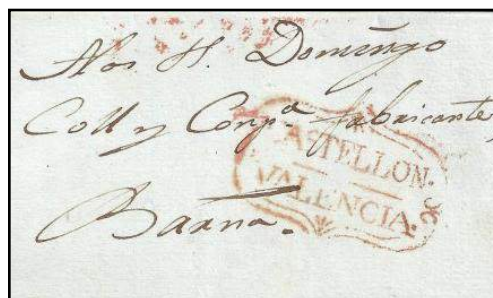 A los S. Domingo
Coll y Comp.ª fabricante
CASTELLON.
VALENCIA.
Barna.